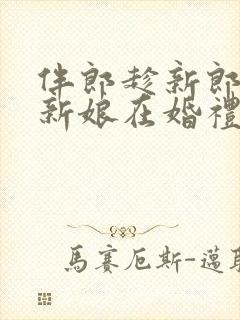 伴郎趁新郎
新娘在婚禮
馬賽厄斯-邁